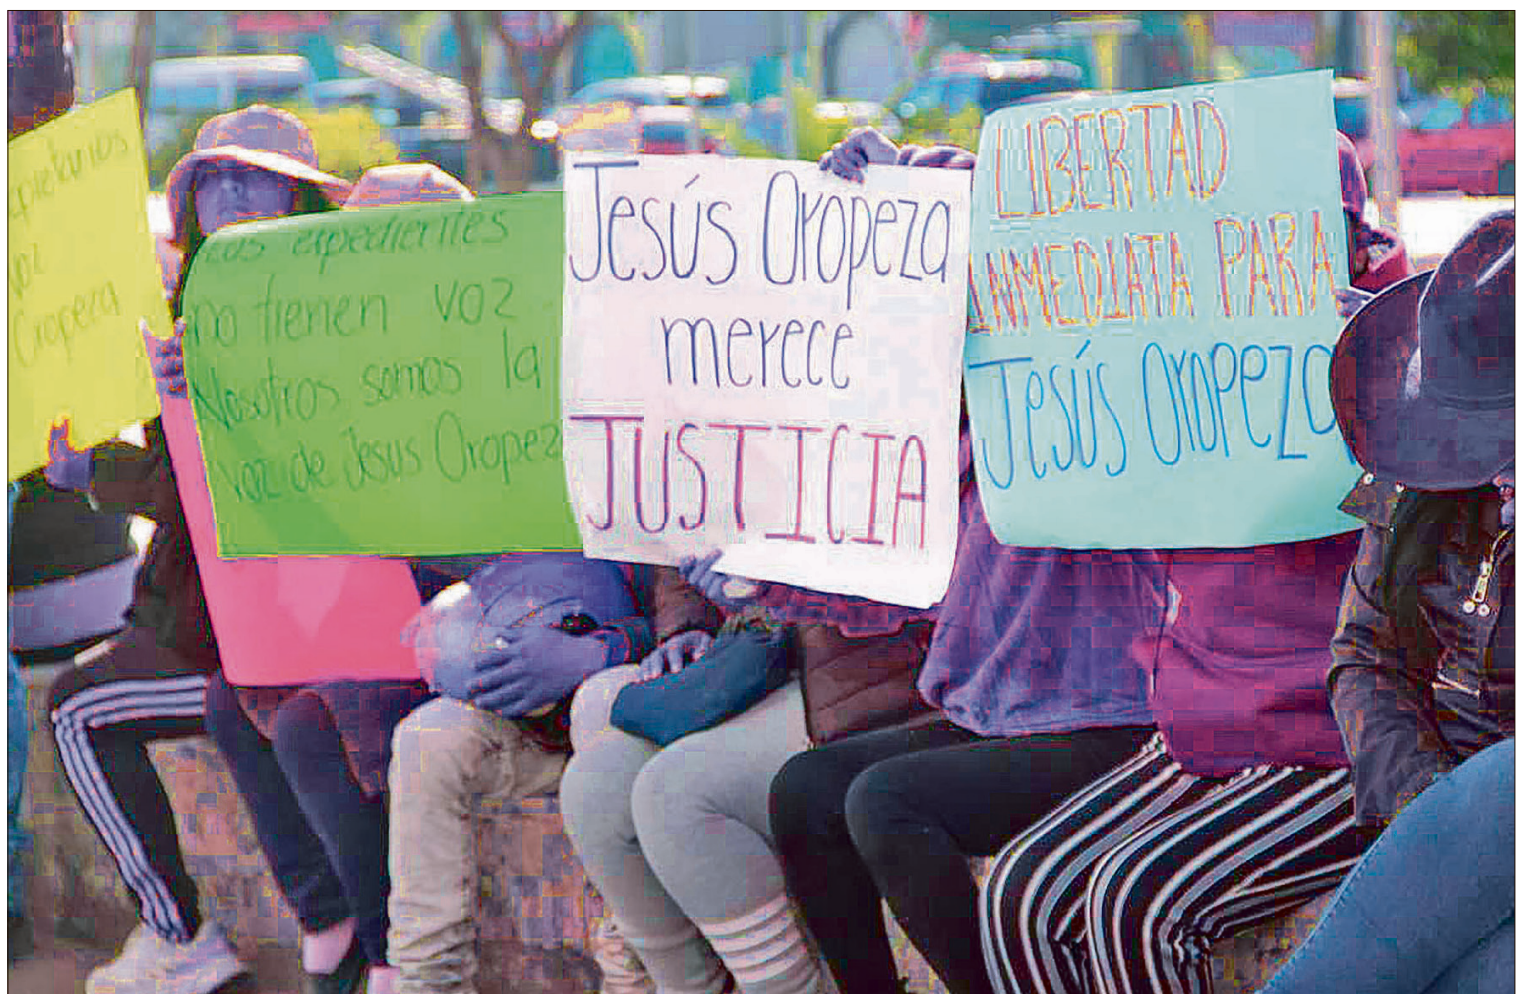 Oropeza
Los expedientes
no tienen voz
Nosotros somos la
voz de Jesus Oropez
Jesús Oropeza
merece
JUSTICIA
LIBERTAD
INMEDIATA PARA
Jesús Oropeza